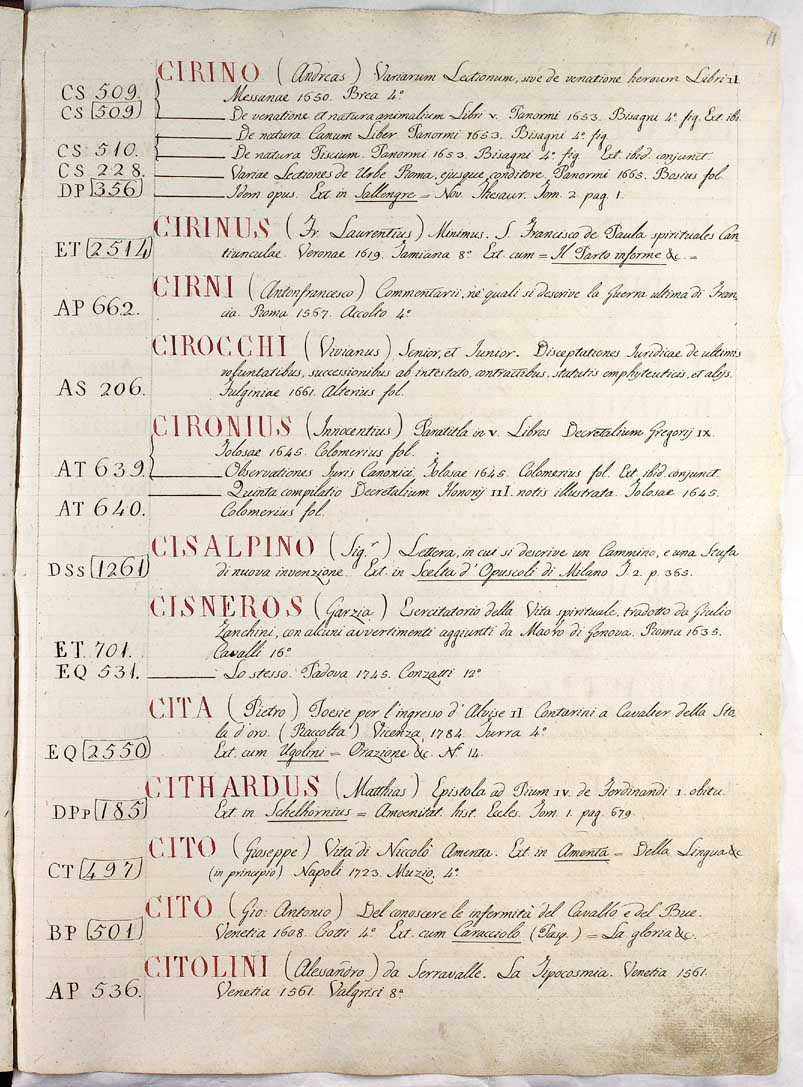 11
CIRINO (Andreas) Variarum Lectionum, sive de venatione heroum Libri II
CS 509. Messanae 1650. Brea 4°
CS 509 ——— De venatione et natura animalium Libri V. Panormi 1653. Bisagni 4° fig. Ext. ibi.
——— De natura Canum Liber. Panormi 1653. Bisagni 4° fig.
CS 510. ——— De natura Piscium. Panormi 1653. Bisagni 4° fig. Ext. ibid. conjunct.
CS 228. ——— Variae Lectiones de Urbe Roma, ejusque conditore. Panormi 1665. Bosius fol.
DP 356 ——— Idem opus. Ext. in Sallengre = Nov. Thesaur. Tom. 2 pag. 1.
CIRINUS (Fr. Laurentius) Minimus. S. Francisco de Paula spirituales Can
ET 2514 tiunculae. Veronae 1619. Tamiana 8° Ext. cum = Il Parto informe &c. =
CIRNI (Antonfrancesco) Commentarii, ne' quali si descrive la Guerra ultima di Fran
AP 662. cia. Roma 1567. Accolto 4°
CIROCCHI (Vivianus) Senior, et Junior. Disceptationes Juridicae de ultimis
voluntatibus, successionibus ab intestato, contractibus, statutis emphyteuticis, et alijs.
AS 206. Fulginiae 1661. Alterius fol.
CIRONIUS (Innocentius) Paratitla in V. Libros Decretalium Gregorij IX.
Tolosae 1645. Colomerius fol.
AT 639. ——— Observationes Iuris Canonici. Tolosae 1645. Colomerius fol. Ext. ibid. conjunct.
——— Quinta compilatio Decretalium Honorij III. notis illustrata. Tolosae 1645.
AT 640. Colomerius fol.
CISALPINO (Sig.r) Lettera, in cui si descrive un Cammino, e una Stufa
DSs 1261 di nuova invenzione. Ext. in Scelta d'Opuscoli di Milano T. 2. p. 365.
CISNEROS (Garzia) Esercitatorio della Vita spirituale, tradotto da Giulio
Zanchini, con alcuni avvertimenti aggiunti da Mauro di Genova. Roma 1635.
ET 701. Cavalli 16°
EQ 531. ——— Lo stesso. Padova 1745. Conzatti 12°
CITA (Pietro) Poesie per l'ingresso d'Alvise II. Contarini a Cavalier della Sto
la d'oro. (Raccolta) Vicenza, 1784. Turra 4°
EQ 2550 Ext. cum Ugolini = Orazione &c. N.° 14.
CITHARDUS (Matthias) Epistola ad Pium IV. de Ferdinandi I. obitu.
DPp 185 Ext. in Schelhornius = Amoenitat. hist. Eccles. Tom. 1. pag. 679.
CITO (Gioseppe) Vita di Niccolò Amenta. Ext. in Amenta = Della Lingua &c
CT 497 (in principio) Napoli 1723. Muzio. 4°
CITO (Gio: Antonio) Del conoscere le infermità del Cavallo e del Bue.
BP 501 Venetia 1608. Ciotti 4° Ext. cum Caracciolo (Pasq.) = La gloria &c.
CITOLINI (Alessandro) da Serravalle. La Tipocosmia. Venetia 1561.
AP 536. Venetia 1561. Valgrisi 8°